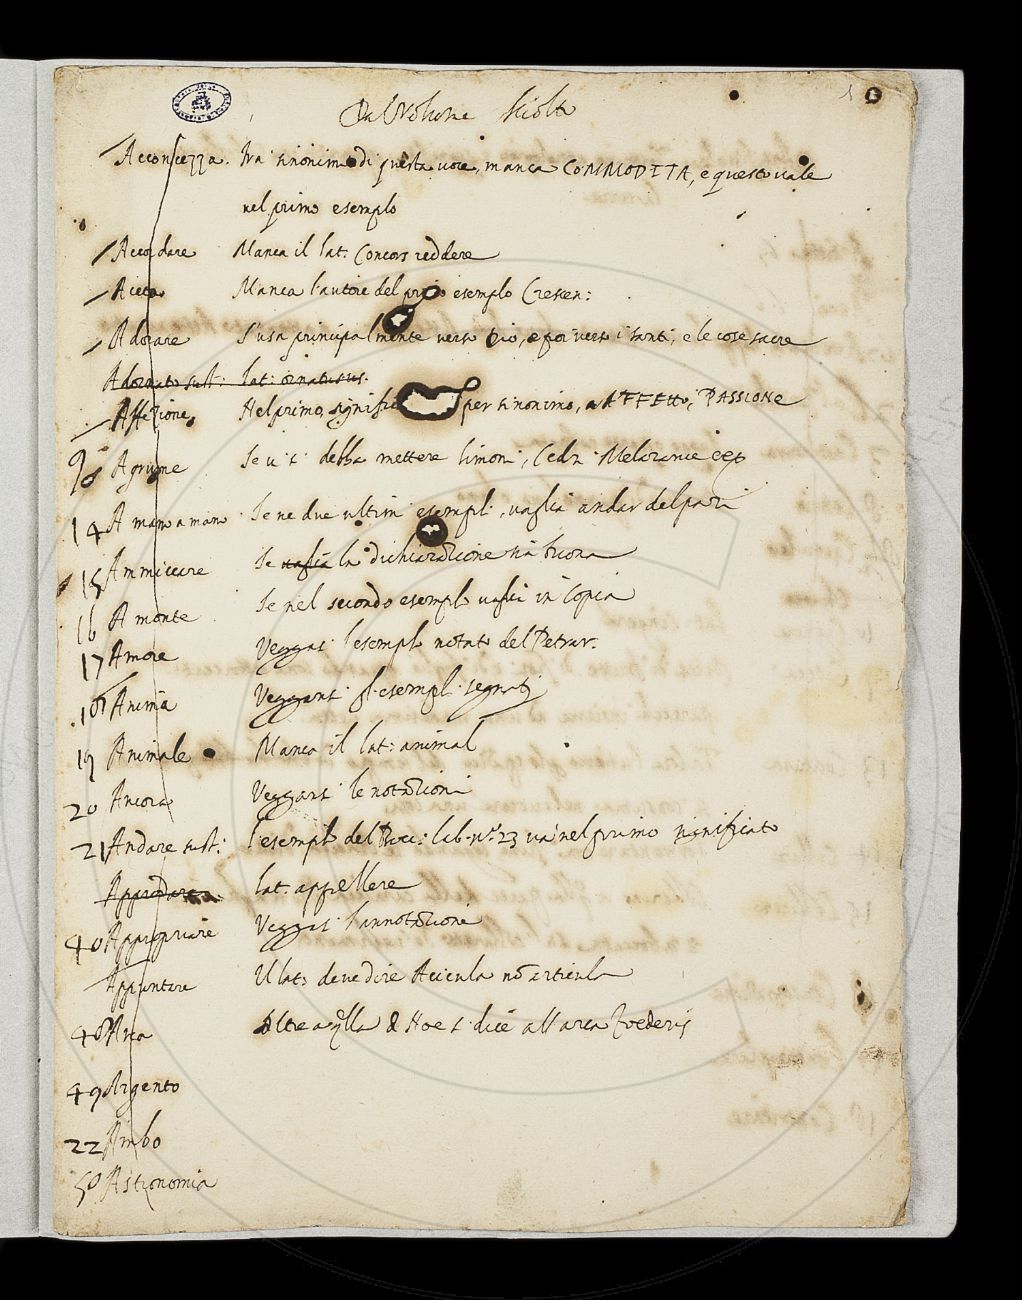 Dal Volume sciolto
1
Acconcezza. Tra sinonimi di questa voce, manca COMMODITA, e questo vale
nel primo esemplo
Accordare Manca il lat: Concors reddere
Aceto Manca l'autore del primo esemplo Crescen:
Adorare S'usa principalmente verso Dio, e poi verso i santi, e le cose sacre
Adornato sust: lat: ornatus us.
Affezione Nel primo, signific per sinonimo, AFFEtto, PASSIONe
98 Agrume Se vi si debba mettere limoni, Cedri Melarance
14 A mano a mano Se ne due ultimi esempli, vaglia andar del pari
15 Ammiccare Se vaglia la dichiarazione sia buona
16 A monte Se nel secondo esemplo vaglia in Copia
17 Amore Veggasi l'esemplo notato del Petrar.
18 Anima Veggansi gl'esempli segnati
19 Animale Manca il lat: animal
20 Ancora Veggansi le notazioni
21 Andare sust: l'esemplo del Bocc: lib. n.º 23 va nel primo significato
Approdare lat: appellere
40 Appropriare Veggasi l'annotazione
Appuntare Il lat: deve dire Acicula nō articula
48 Arca Oltre a q̃lla d Noe si dice all'arca Foederis
49 Argento
22 Ambo
50 Astronomia